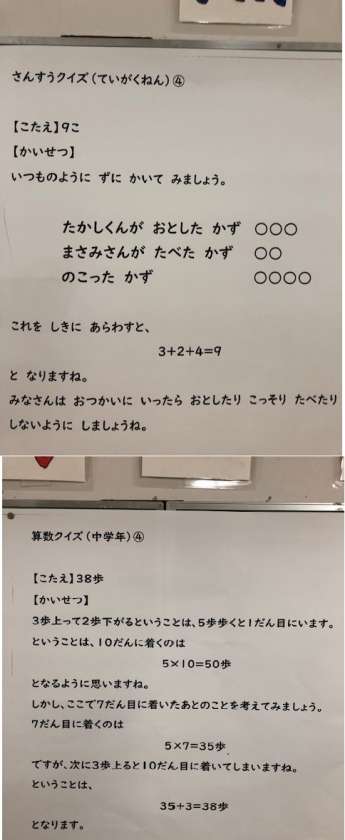 さんすうクイズ（ていがくねん）④
【こたえ】9こ
【かいせつ】
いつものように ずに かいて みましょう。
たかしくんが おとした かず ○○○
まさみさんが たべた かず ○○
のこった かず ○○○○
これを しきに あらわすと、
3+2+4=9
と なりますね。
みなさんは おつかいに いったら おとしたり こっそり たべたり
しないように しましょうね。
算数クイズ（中学年）④
【こたえ】38歩
【かいせつ】
3歩上って2歩下がるということは、5歩歩くと1だん目にいます。
ということは、10だんに着くのは
5×10=50歩
となるように思いますね。
しかし、ここで7だん目に着いたあとのことを考えてみましょう。
7だん目に着くのは
5×7=35歩
ですが、次に3歩上ると10だん目に着いてしまいますね。
ということは、
35+3=38歩
となります。